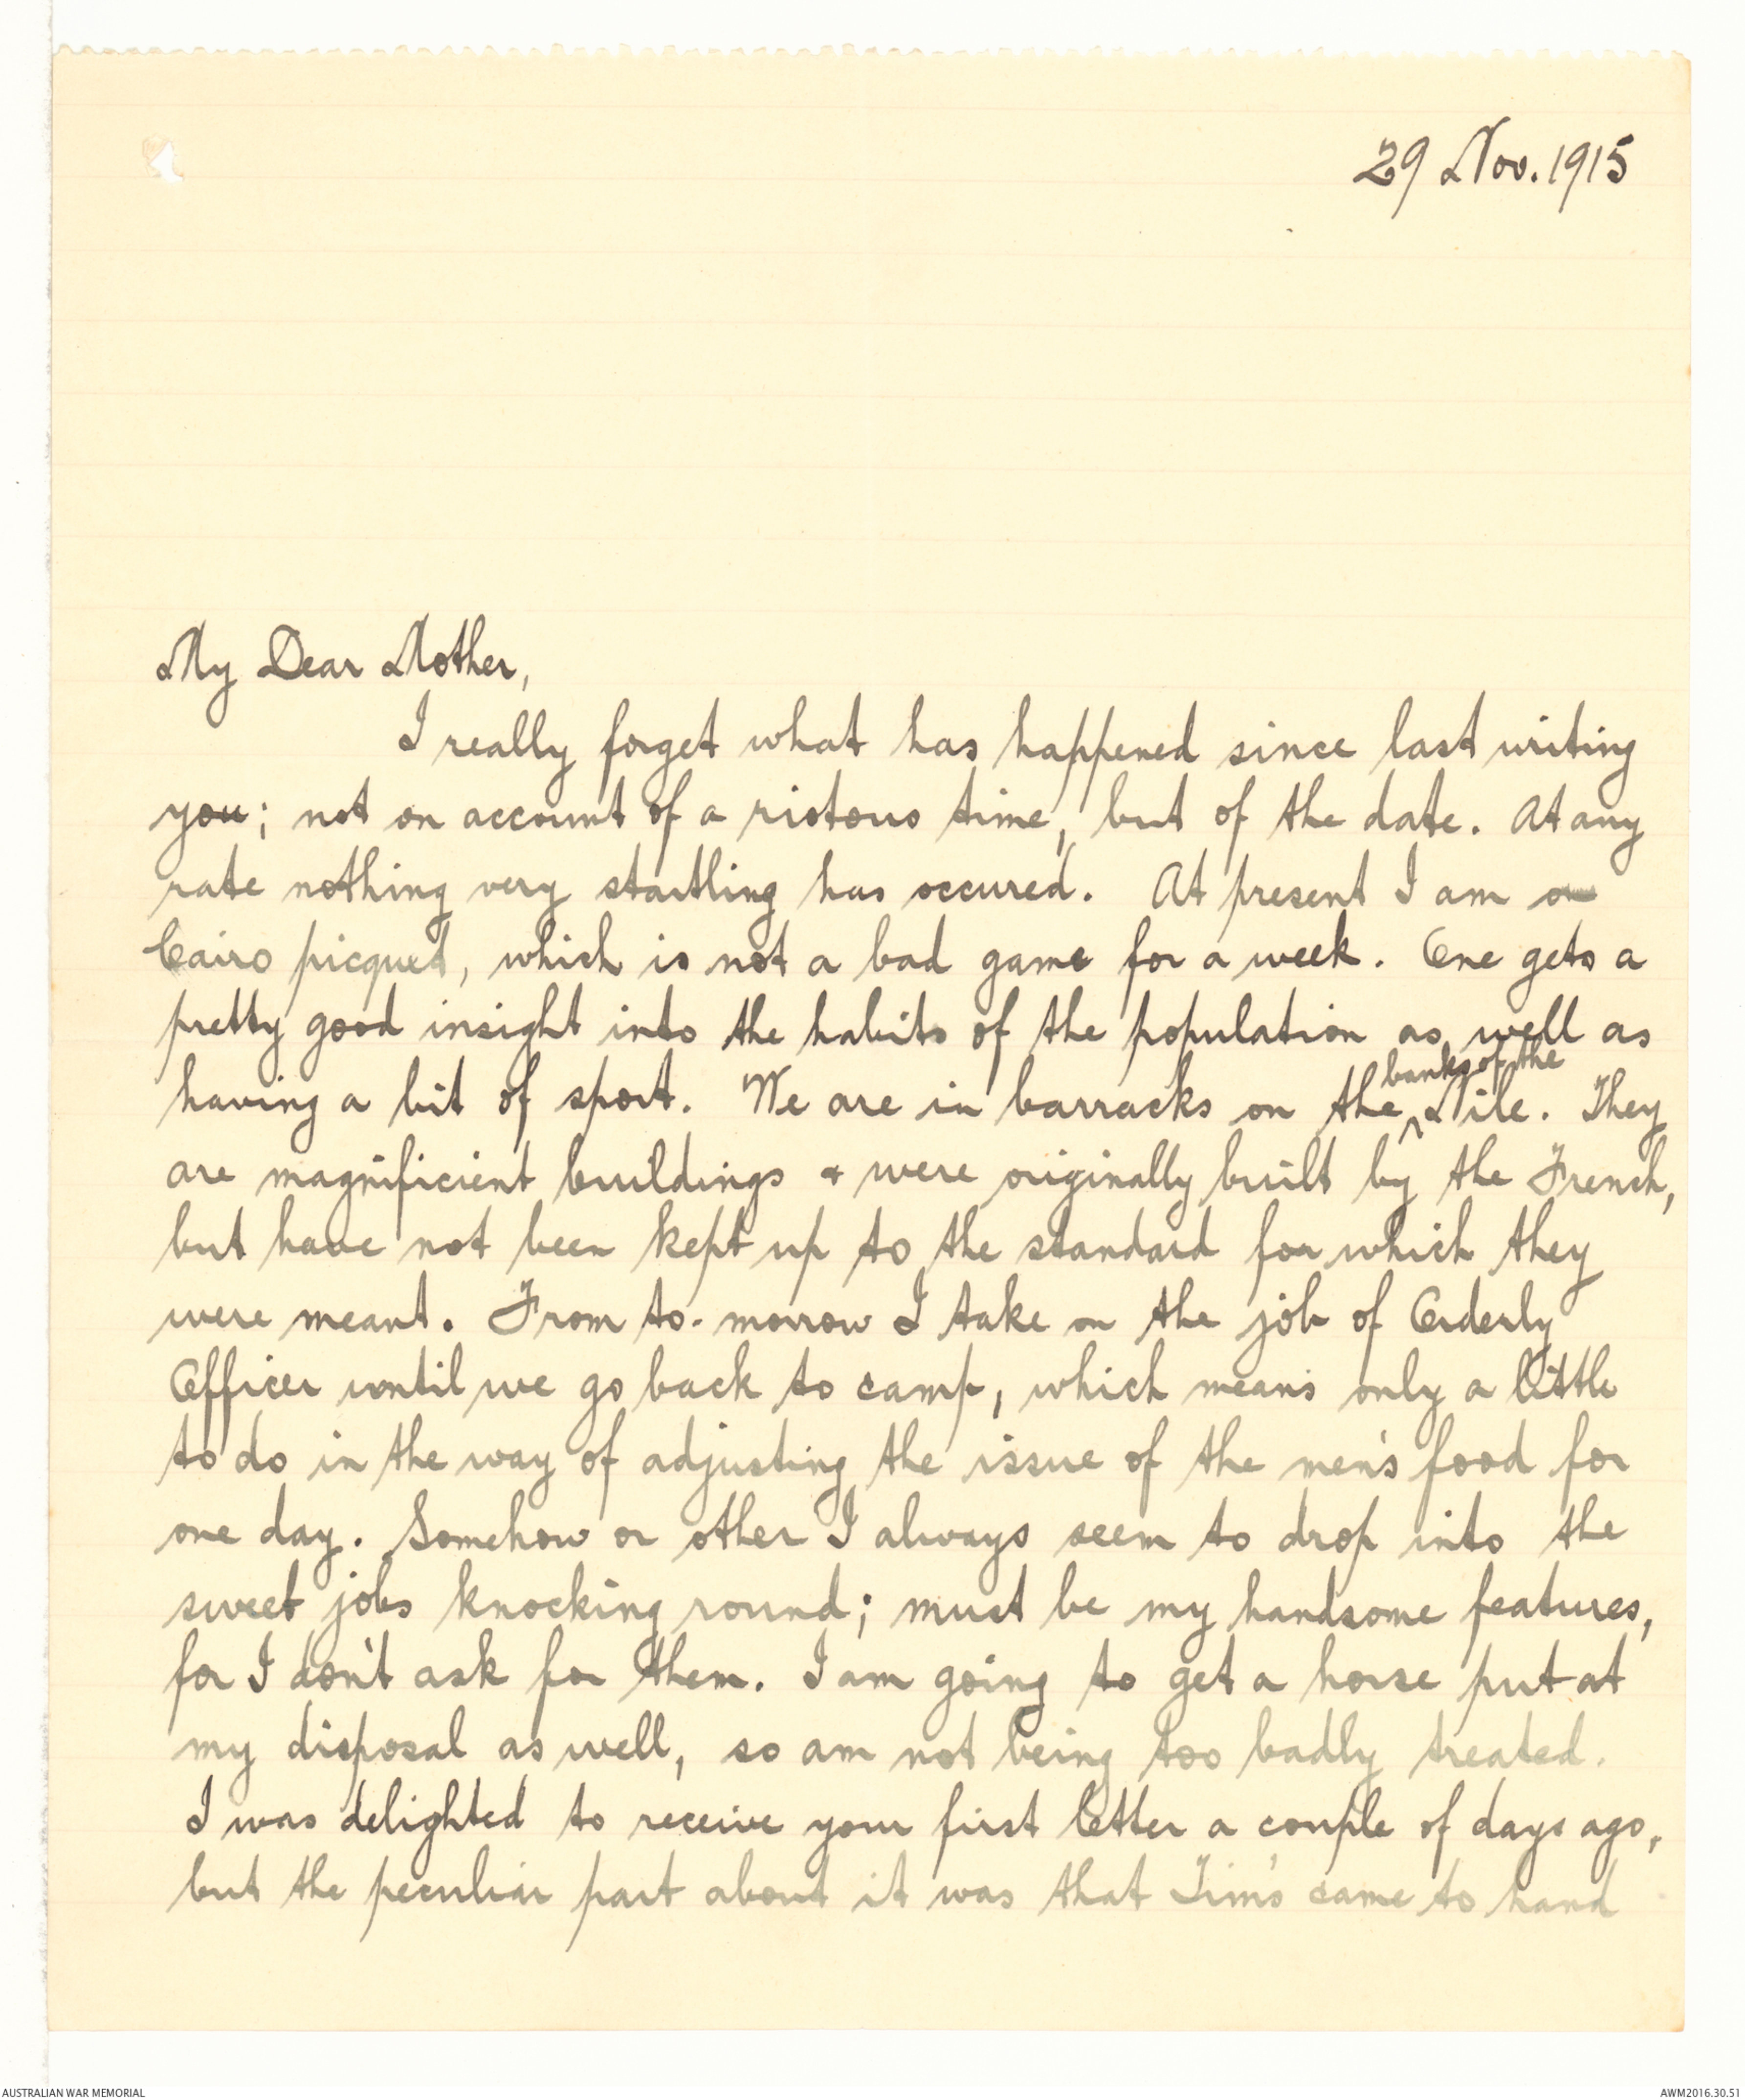 29 Nov. 1915
My Dear Mother,
I really forget what has happened since last writing
you; not on account of a riotous time, but of the date. At any
rate nothing very startling has occured. At present I am on
Cairo picquet, which is not a bad game for a week. One gets a
pretty good insight into the habits of the population as well as
banks of the
having a bit of sport. We are in barracks on the Nile. They
are magnificient buildings & were originally built by the French,
but have not been kept up to the standard for which they
were meant. From to-morrow I take on the job of Orderly
Officer until we go back to camp, which means only a little
to do in the way of adjusting the issue of the men's food for
one day. Somehow or other I always seem to drop into the
sweet jobs knocking round; must be my handsome features,
for I don't ask for them. I am going to get a horse put at
my disposal as well, so am not being too badly treated.
I was delighted to receive your first letter a couple of days ago,
but the peculiar part about it was that Jim's came to hand
AUSTRALIAN WAR MEMORIAL
AWM2016.30.51